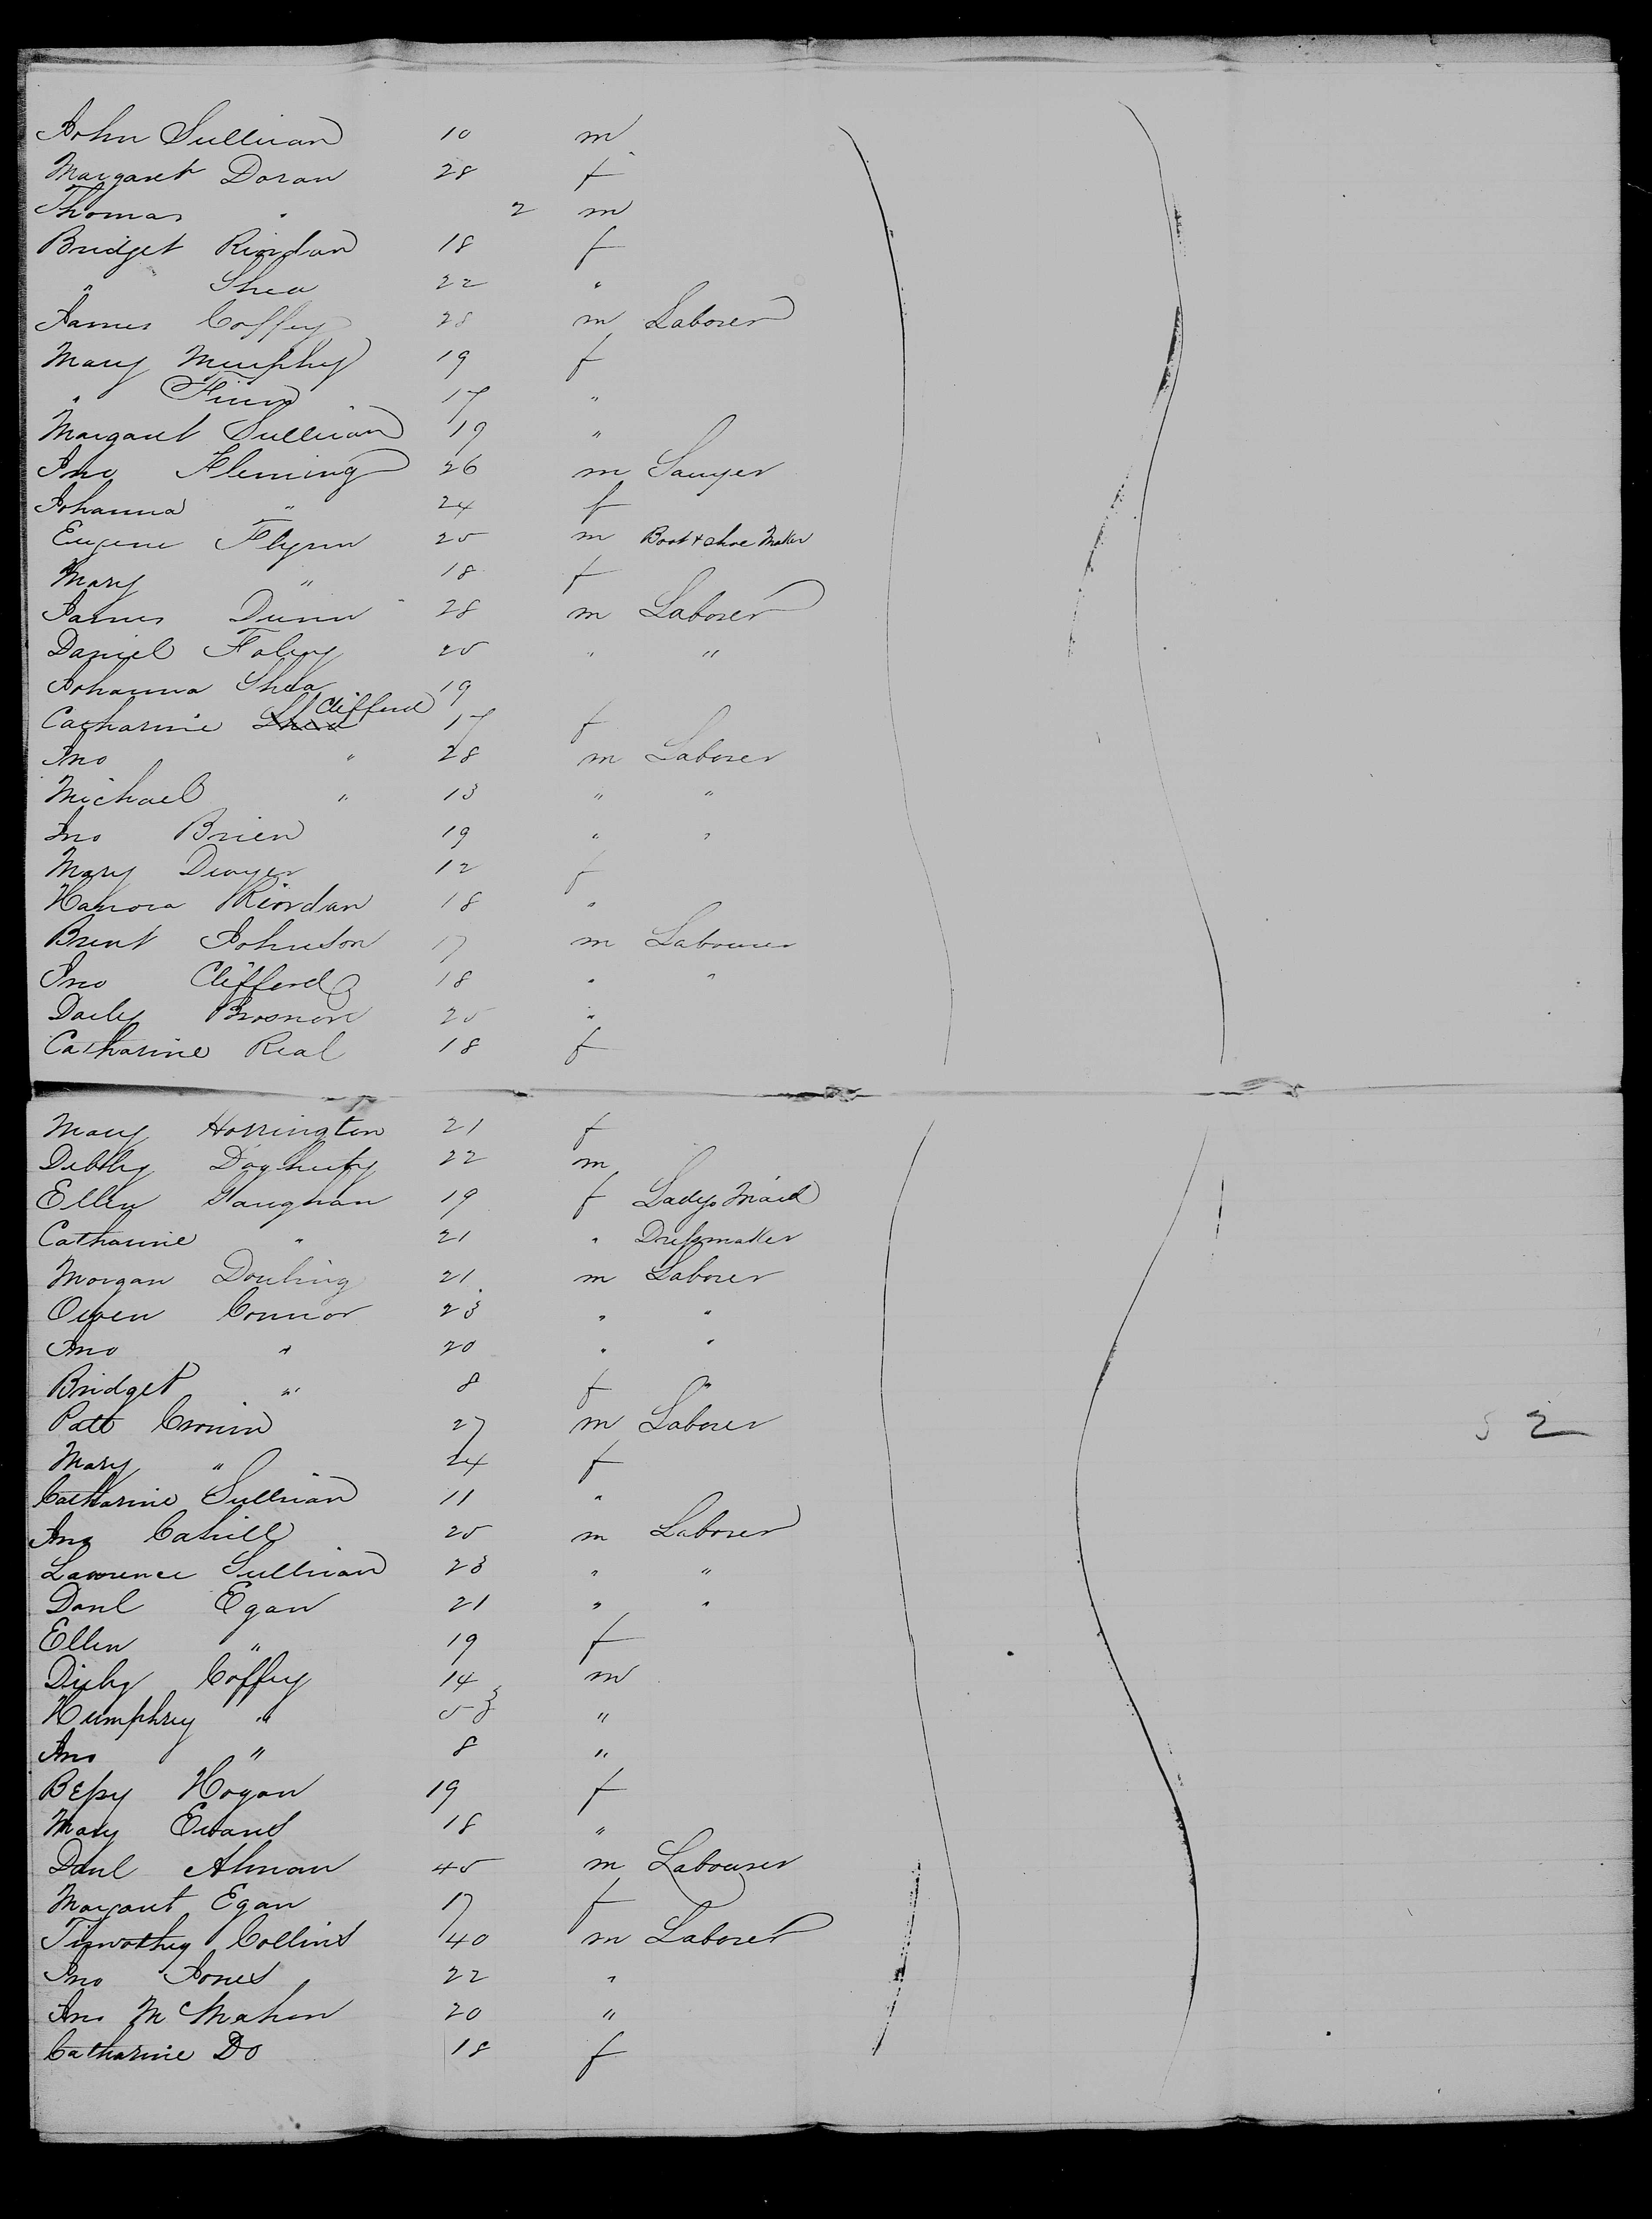 John Sullivan 10 m
Margaret Doran 28 f
Thomas " 2 m
Bridget Riordan 18 f
" Shea 22 "
James Coffey 28 m Laborer
Mary Murphy 19 f
" Finn 17 "
Margaret Sullivan 19 "
Jno Fleming 26 m Sawyer
Johanna " 24 f
Eugene Flynn 25 m Boot & Shoe Maker
Mary " 18 f
James Dunn 28 m Laborer
Daniel Foley 25 " "
Johanna Shea 19
Catharine Shea Clifford 17 f
Jno " 28 m Laborer
Michael " 13 " "
Jno Brien 19 " "
Mary Dwyer 12 f
Hanora Riordan 18 "
Brent Johnson 17 m Labourer
Jno Clifford 18 " "
Brosnan 25 "
Catharine Real 18 f
Mary Horrington 21 f
22 m
Ellen Gaughan 19 f Ladys Maid
Catharine " 21 " Dressmaker
Morgan Douling 21 m Laborer
Owen Connor 23 " "
Jno " 20 " "
Bridget " 8 f "
Patt Cronin 27 m Laborer
Mary " 24 f
Catharine Sullivan 11 "
Jno Cahill 25 m Laborer
Lawrence Sullivan 23 " "
Danl Egan 21 " "
Ellen " 19 f
Coffey 14 m
Humphrey " 5 "
Jno " 8 "
Bessy Hogan 19 f
Mary Evans 18 "
Danl Ahman 45 m Labourer
Margaret Egan 17 f
Timothy Collins 40 m Laborer
Jno Jones 22 "
Jno McMahon 20 "
Catharine Do 18 f
52